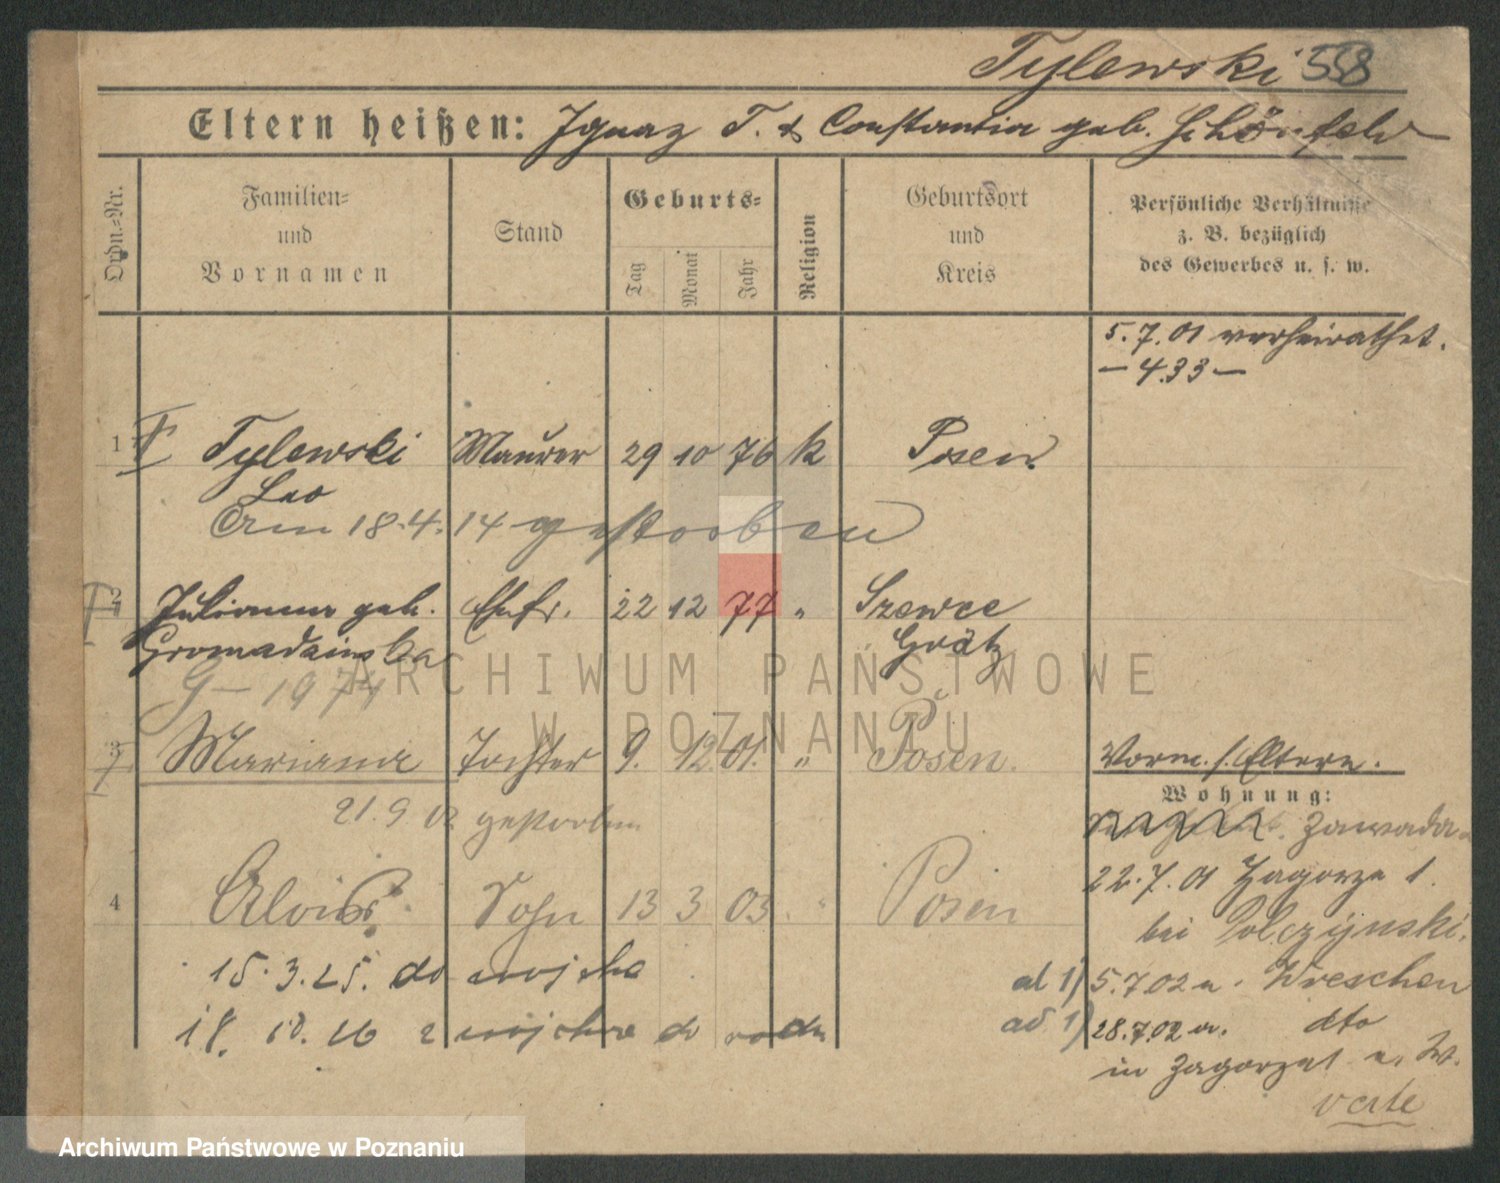 Tylewski 558
Eltern heißen: Ignaz T. & Constantia geb. Schönfeld
Ordn.-Nr.
Familien- und Vornamen
Stand
Geburts-
Tag
Monat
Jahr
Religion
Geburtsort und Kreis
Persönliche Verhältnisse z. B. bezüglich des Gewerbes u. s. w.
5.7.01 verheirathet.
— 433 —
1 Tylewski Maurer 29 10 76 K Posen
Leo
Am 18.4.14 gestorben
2 Julianna geb. Ehefr. 22 12 77 " Szewce
Gromadzinska Grätz
G — 1974
3 Marianna Tochter 9. 12. 01. " Posen. Vorm. s. Eltern.
Wohnung:
21.9.02 gestorben Zawada
4 Alois Sohn 13 3 03 " Posen 22.7.01 Zagorze 1.
bei Polczynski.
15.3.25. do wojska ad 1) 5.7.02 n. Wreschen
18. 10. 26 z wojska do ad 1) 28.7.02 n. dto
in Zagorze 1
verte
ARCHIWUM PAŃSTWOWE
W POZNANIU
Archiwum Państwowe w Poznaniu